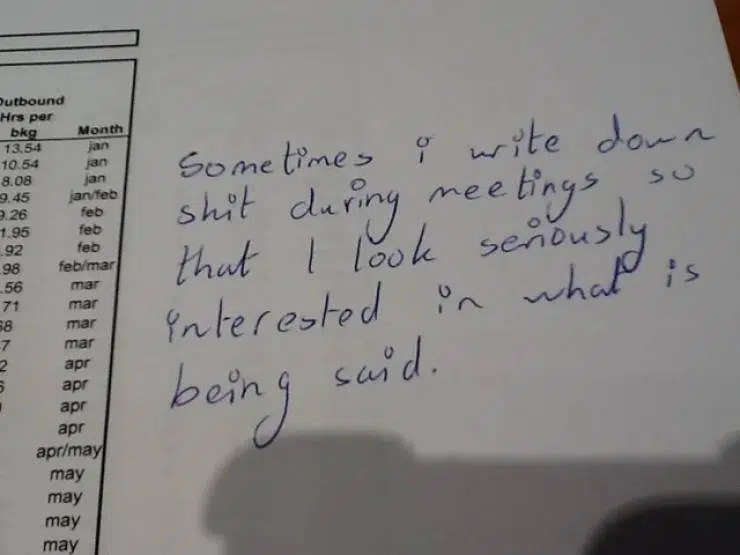 Outbound
Hrs per
bkg Month
13.54 jan
10.54 jan
8.08 jan
9.45 jan/feb
9.26 feb
1.95 feb
.92 feb
98 feb/mar
.56 mar
71 mar
38 mar
7 mar
2 apr
apr
apr
apr
apr/may
may
may
may
may
Sometimes i write down
shit during meetings so
that I look seriously
interested in what is
being said.